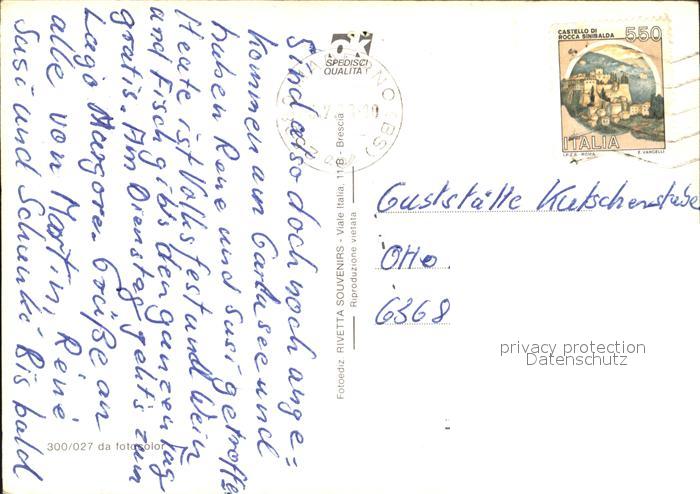 Sind also doch noch ange=
kommen am Gardasee und
haben René und Susi getroffen
Heute ist Volksfest und Wein
und Fisch gibts den ganzen Tag
gratis. Am Dienstag gehts zum
Lago Maggore. Grüße an
alle von Martin, René
Susi und Schanki Bis bald
SPEDISCI
QUALITÀ
CASTELLO DI
ROCCA SINIBALDA
550
ITALIA
I.P.Z.S. - ROMA
E. VANGELLI
(BS)
Gaststätte Kutscherstube
Otto
6368
privacy protection
Datenschutz
Fotoediz. RIVETTA SOUVENIRS - Viale Italia, 11/B - Brescia
Riproduzione vietata
300/027 da fotocolor